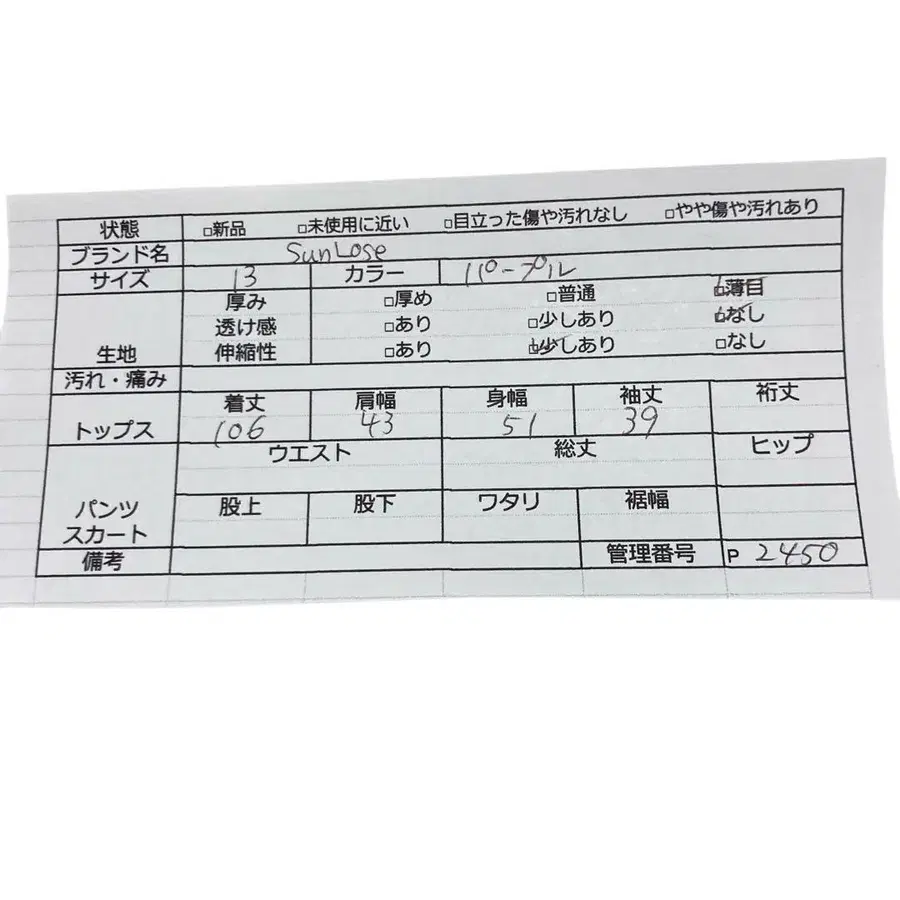 状態 □新品 □未使用に近い □目立った傷や汚れなし □やや傷や汚れあり
ブランド名 SunLose
サイズ 13 カラー パープル
生地 厚み □厚め □普通 ☑薄目
透け感 □あり □少しあり ☑なし
伸縮性 □あり ☑少しあり □なし
汚れ・痛み
トップス 着丈 肩幅 身幅 袖丈 裄丈
106 43 51 39
パンツ スカート ウエスト 総丈 ヒップ
股上 股下 ワタリ 裾幅
備考 管理番号 P 2450